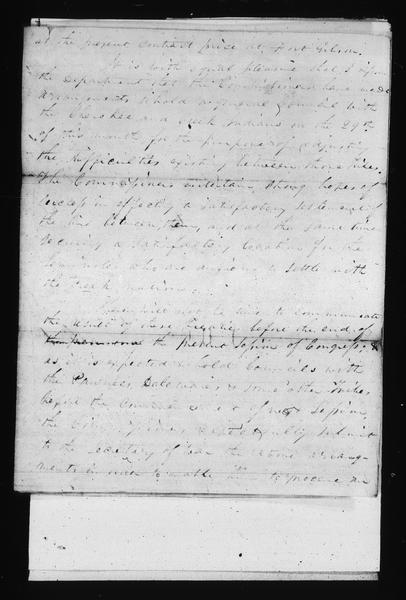 at the present contract price at Fort Gibson.
It is with equal pleasure that I
the Department that the Commissioners have made
arrangements to hold a general Council with
the Cherokee and Creek Indians on the 29th
of this month for the purpose of adjusting
the difficulties existing between those tribes.
The Commissioners entertain strong hopes of
success in effecting a satisfactory settlement of
the line between them, and at the same time
securing a satisfactory location for the
Seminoles who are anxious to settle with
the Creek nation
not be able to communicate
the result of these before the end of
the present Session of Congress, &
as it is expected to hold Councils with
the Pawnees, & some other tribes
before the of next Session,
the Commissioners respectfully submit
to the Secretary of War the above arrange-
ments in order to enable him to procure an